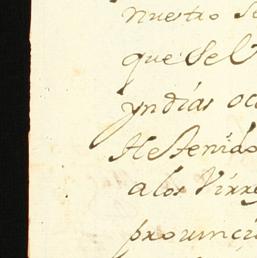 nuestro
que Se
yndias
He Tenido
a los Virre
prouinci